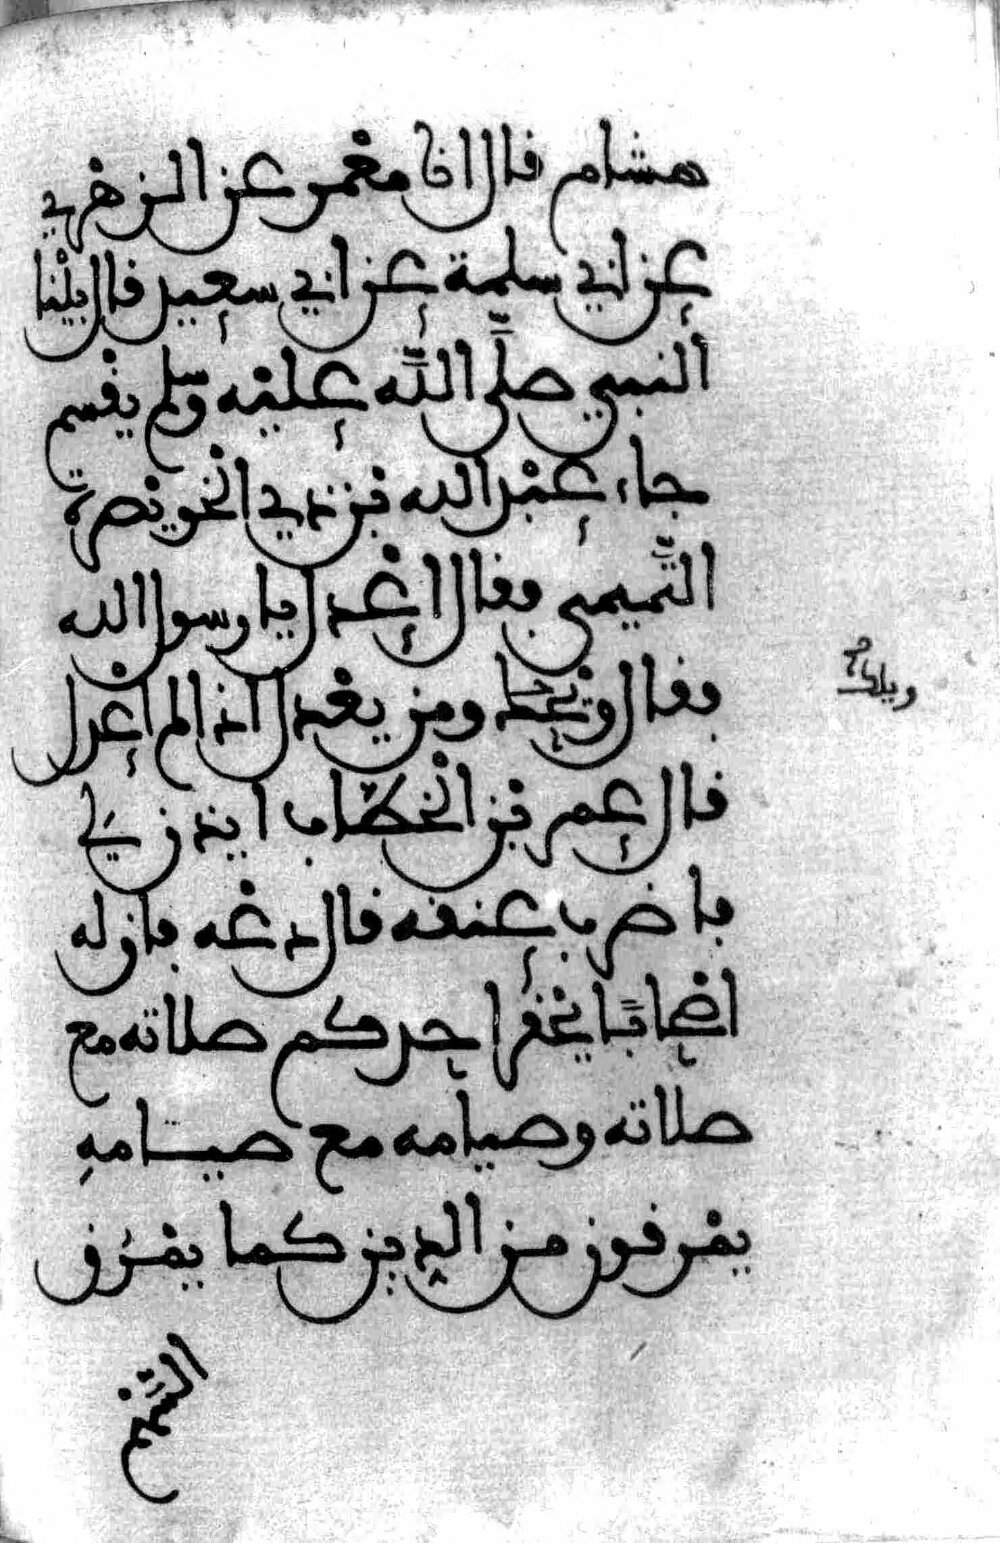 هشام قال انا معمر عن الزهري
عن ابي سلمة عن ابي سعيد قال بيْنا
النبي صلَّى اللَّه عليْه وسلم يقسم
جاء عبْد الله بن ذي الخويْصرة
التَّميمي فقال اعْدل يا رسول الله
فقال ويْحك ومن يعْدل اذا لم اعْدل
ويلك
قال عمر بن الخطَّاب ايذن لي
فاضرب عنقه قال دعْه فان له
اصْحابًا يحْقر احدكم صلاته مع
صلاته وصيامه مع صيامه
يمْرقون من الدين كما يمْرُق
السَّهْم